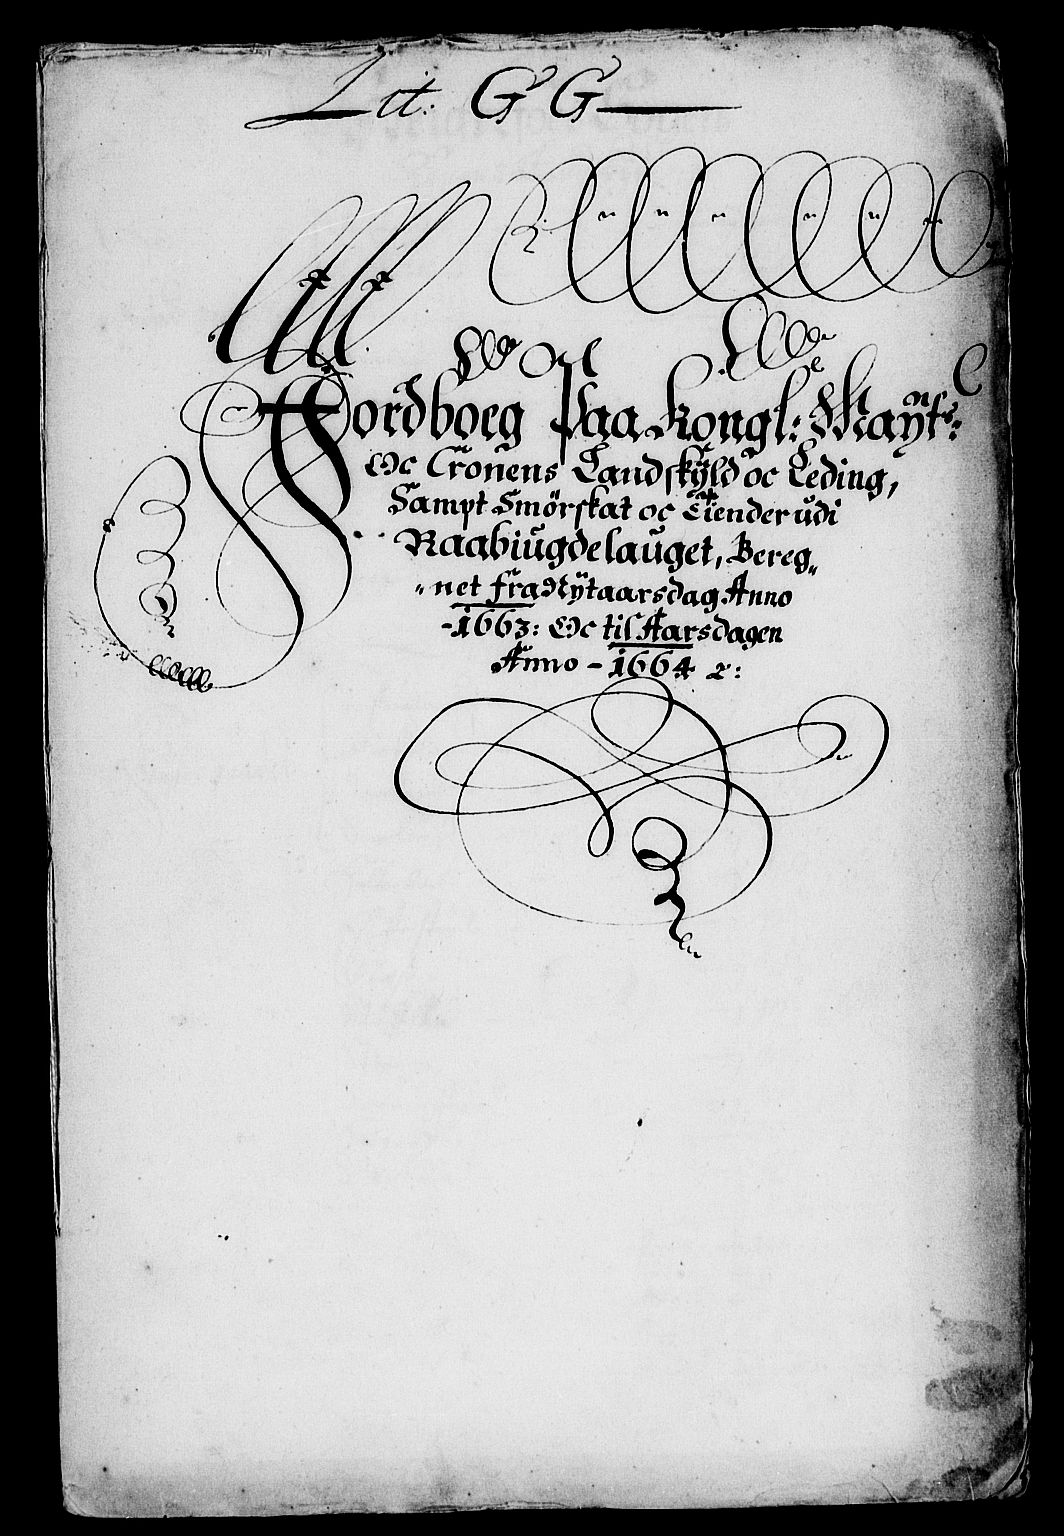 Lit: GG
Jordboeg Paa Kongl: Maÿts:
Oc Cronens Landskÿld oc Leding,
Sampt Smörskat oc Tiender udi
Raabiugdelauget, Bereg„
„net fra Nÿtaarsdag Anno
-1663: Oc til Aarsdagen
Anno - 1664